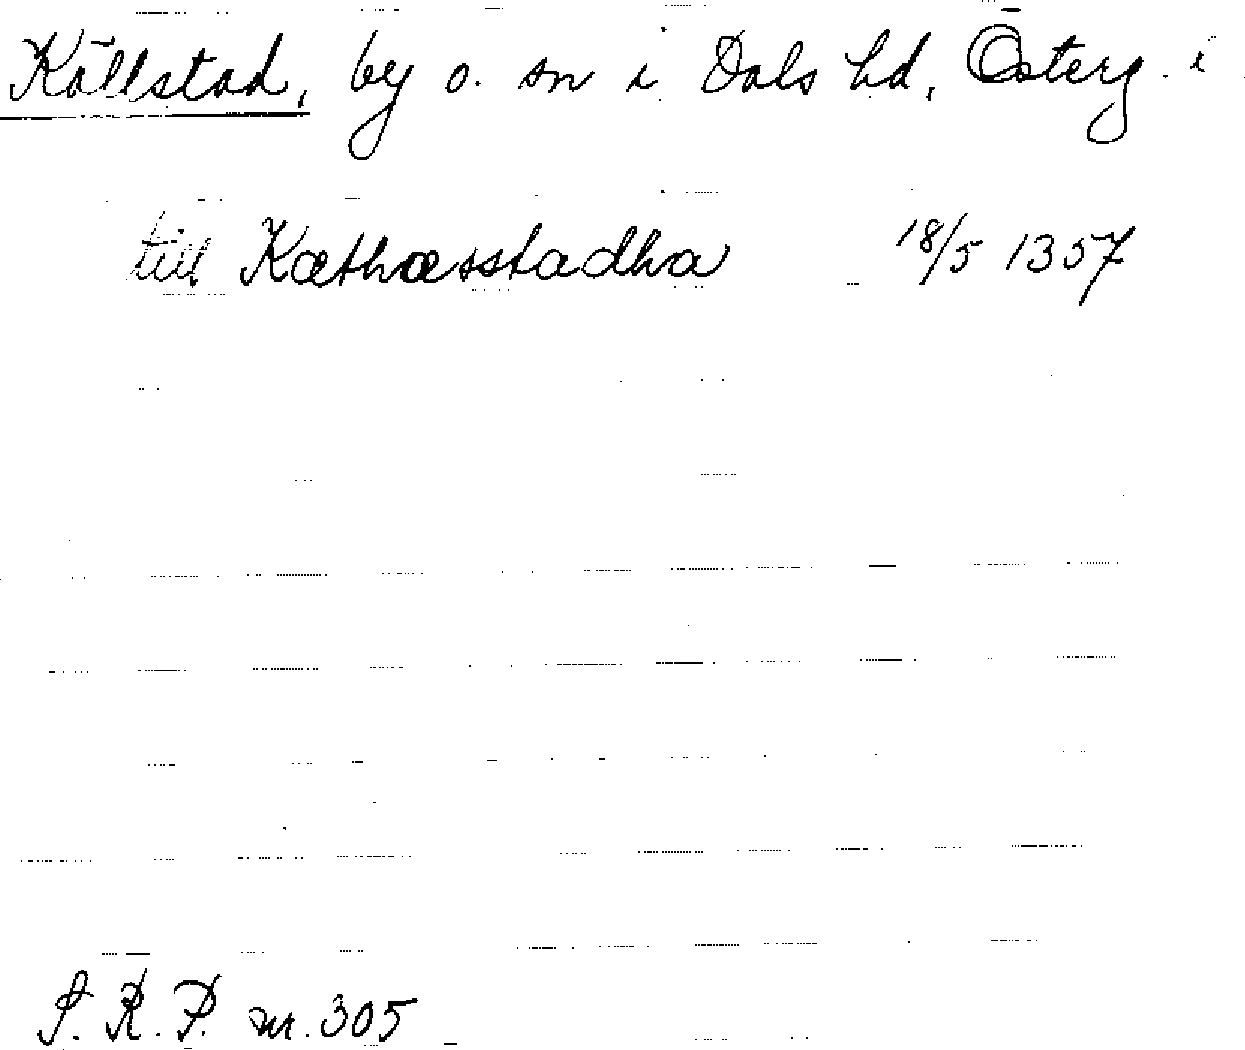 Källstad, by o. sn i Dals hd, Österg.
till Kæthæsstadha 18/5 1357
S. R. P. nr. 305